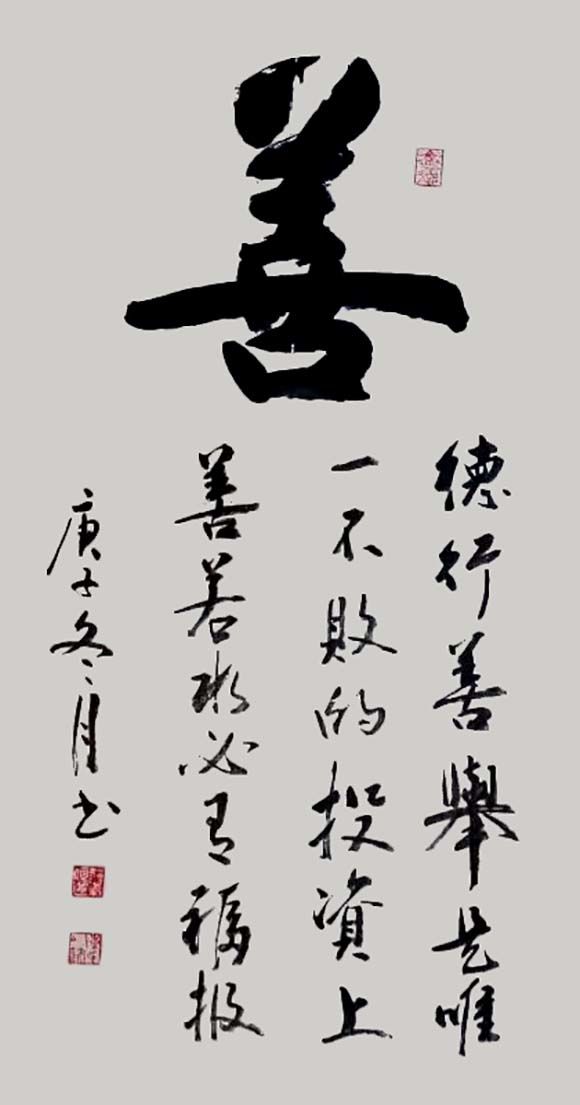 善
德行善舉是唯
一不敗的投資上
善若水必有福报
庚子冬月书